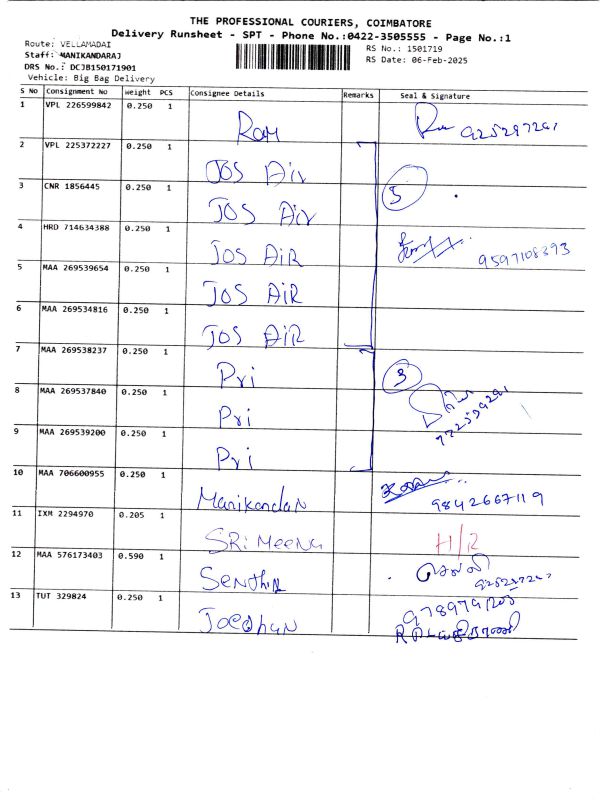 THE PROFESSIONAL COURIERS, COIMBATORE
Delivery Runsheet - SPT - Phone No.:0422-3505555 - Page No.:1
Route: VELLAMADAI
RS No.: 1501719
Staff: MANIKANDARAJ
RS Date: 06-Feb-2025
DRS No.: DCJB150171901
Vehicle: Big Bag Delivery
S No Consignment No Weight PCS Consignee Details Remarks Seal & Signature
1 VPL 226599842 0.250 1 Ram
2 VPL 225372227 0.250 1 JOS Air
3 CNR 1856445 0.250 1 JOS Air 5
4 HRD 714634388 0.250 1 JOS AiR 9597108393
5 MAA 269539654 0.250 1 JOS AiR
6 MAA 269534816 0.250 1 JOS AiR
7 MAA 269538237 0.250 1 Pri 3
8 MAA 269537840 0.250 1 Pri
9 MAA 269539200 0.250 1 Pri
10 MAA 706600955 0.250 1 Manikandan 9842667119
11 IXM 2294970 0.205 1 SRi Meena H/R
12 MAA 576173403 0.590 1 Senthil செல்வி
13 TUT 329824 0.250 1